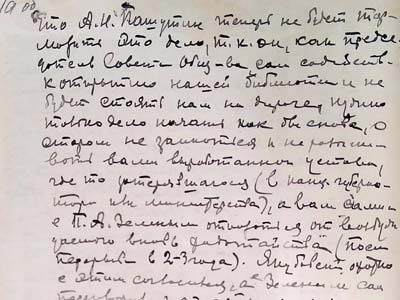 1900
что А.Н. Пашутин теперь не будет тор-
мозить это дело, т.к. он, как предсе-
датель Совета Общ-ва сам содейств.
открытию нашей библиотеки и не
будет стоять нам на дороге, нужно
только дело начать как бы снова, о
старом не заикаться и не разыски-
вать вами выработанный устав,
где то затерявшагося (в канц. губерна-
тора или министерства), а вам самим
с П.А. Зелёным отказаться от
вновь ходатайства (после
перерыва в 2-3 года). Якубович охотно
с этим согласился, а Зеленый сам